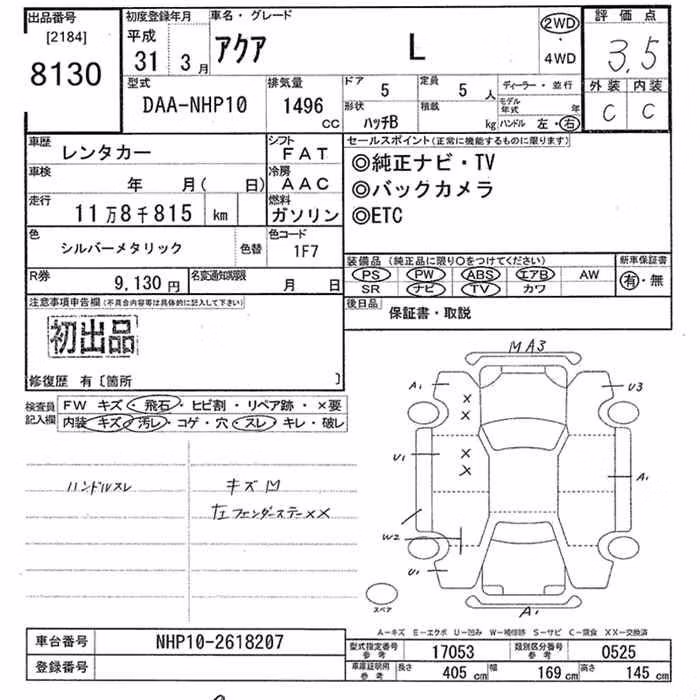 出品番号
[2184]
8130
初度登録年月
平成
31 3月
車名・グレード
アクア L
2WD
・
4WD
評価点
3.5
外装 内装
C C
型式
DAA-NHP10
排気量
1496
CC
ドア 5
定員 5 人
形状 ハッチB
積載 kg
ディーラー・並行
モデル年式 年
ハンドル 左・右
車歴 レンタカー
シフト FAT
車検 年 月( 日)
冷房 AAC
走行 11万8千815 km
燃料 ガソリン
色 シルバーメタリック 色替
色コード 1F7
R券 9,130円
名変通知期限 月 日
セールスポイント(正常に機能するものに限ります)
◎純正ナビ・TV
◎バックカメラ
◎ETC
装備品 (純正品に限り○をつけてください)
PS PW ABS エアB AW
SR ナビ TV カワ
新車保証書
有・無
後日品 保証書・取説
注意事項申告欄(不具合内容等は具体的に記入して下さい)
初出品
修復歴 有〔箇所 〕
検査員記入欄
FW キズ・飛石・ヒビ割・リペア跡・×要
内装・キズ・汚レ・コゲ・穴・スレ・キレ・破レ
ハンドルスレ
キズM
左フェンダーステー××
MA3
A1
U3
×
×
U1
×
×
A1
W2
U1
A1
スペア
A-キズ E-エクボ U-凹み W-補修跡 S-サビ C-腐食 XX-交換済
車台番号 NHP10-2618207
登録番号
型式指定番号 参考 17053
類別区分番号 参考 0525
車庫証明用 参考
長さ 405 cm
幅 169 cm
高さ 145 cm